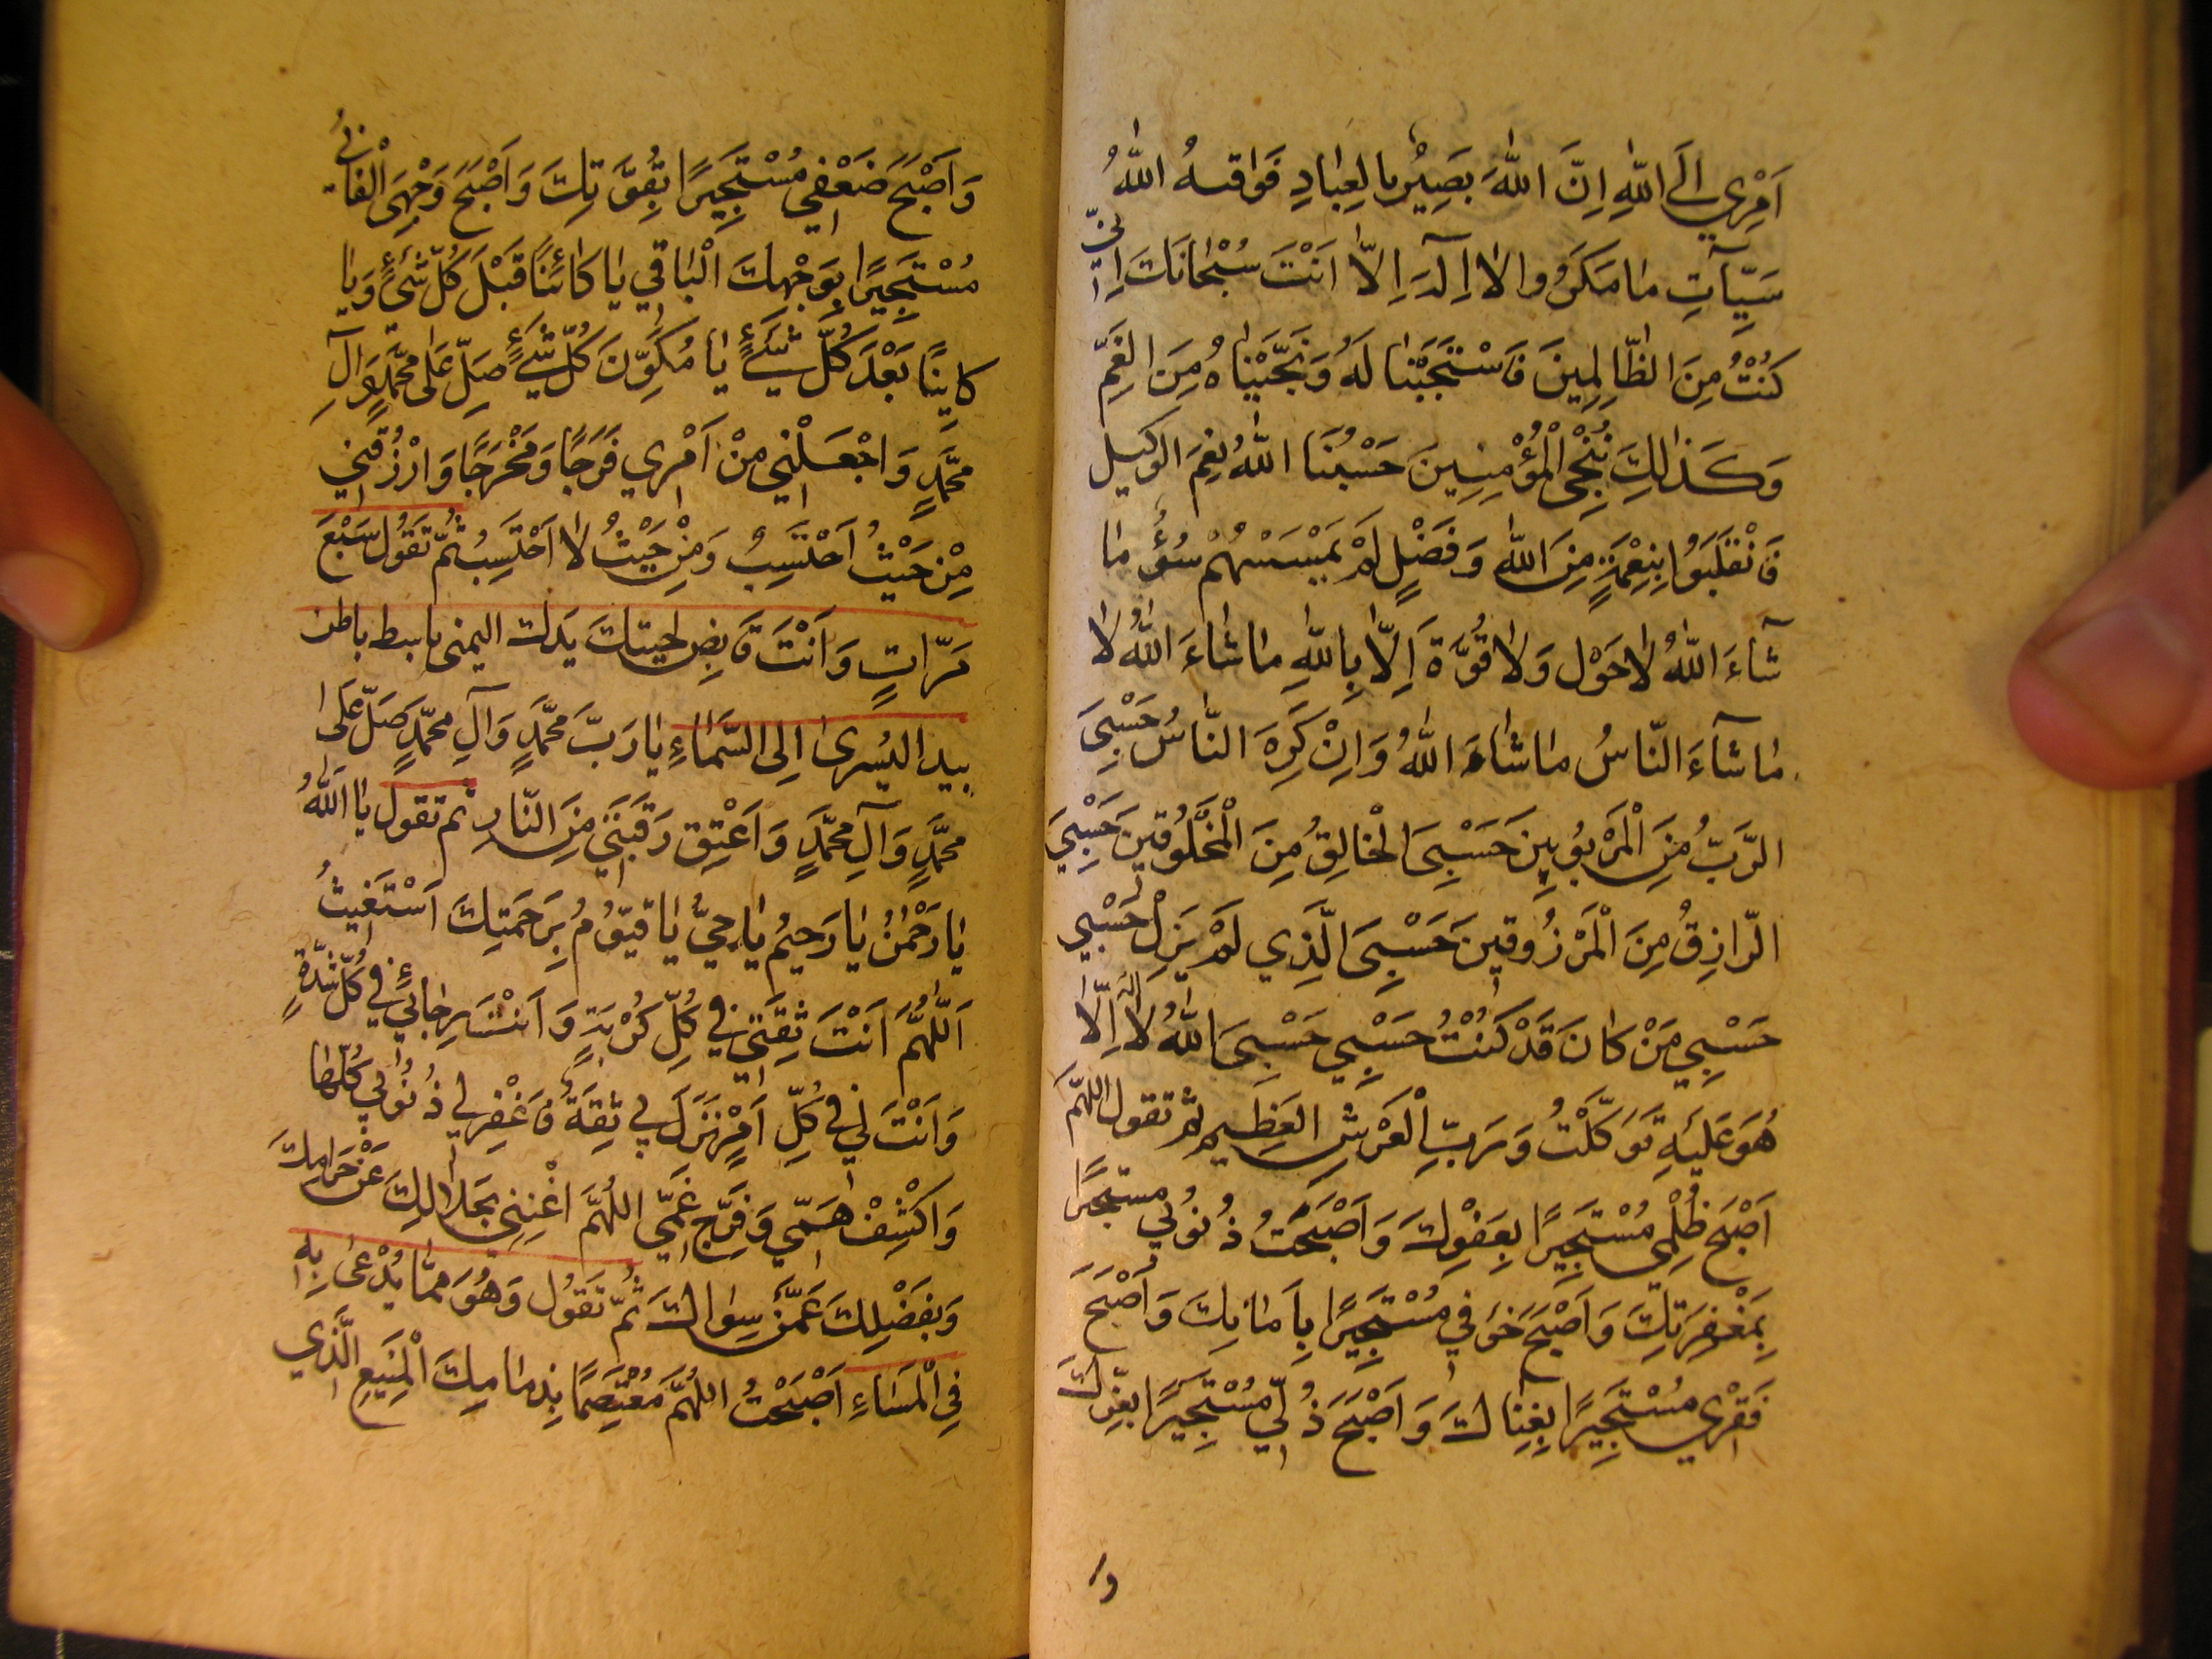 اَمْرِي اِلَى اللّٰهِ اِنَّ اللّٰهَ بَصِيْرٌ بِالْعِبٰادِ فَوَاقٰهُ اللّٰهُ
سَيِّآتِ مٰا مَكَرُوا لا اِلٰهَ اِلّٰا اَنْتَ سُبْحٰانَكَ اِنّي
كُنْتُ مِنَ الظّٰالِمِينَ فَاسْتَجَبْنٰا لَهُ وَنَجَّيْنٰاهُ مِنَ الغَمِّ
وَكَذٰالِكَ نُنْجِى الْمُؤْمِنِينَ حَسْبُنَا اللّٰهُ نِعْمَ الوَكِيل
فَانْقَلَبُوا بِنِعْمَةٍ مِنَ اللّٰهِ وَفَضْلٍ لَمْ يَمْسَسْهُمْ سُوْءٌ مٰا
شٰاءَ اللّٰهُ لاٰ حَوْل وَلاٰ قُوَّةَ اِلّٰا بِاللّٰهِ مٰا شٰاءَ اللّٰهُ لاٰ
مٰا شٰاءَ النّٰاسُ مٰا شٰاءَ اللّٰهُ وَاِنْ كَرِهَ النّٰاسُ حَسْبِىَ
الرَّبُّ مِنَ الْمَرْبُوبِينَ حَسْبِىَ الْخٰالِقُ مِنَ الْمَخْلُوقِينَ حَسْبِيَ
الرّٰازِقُ مِنَ الْمَرْزُوقِينَ حَسْبِىَ الَّذِي لَمْ يَزِلْ حَسْبِي
حَسْبِي مَنْ كٰانَ قَدْ كُنْتُ حَسْبِي حَسْبِىَ اللّٰهُ لاٰ اِلٰهَ اِلّٰا
هُوَ عَلَيْهِ تَوَكَّلْتُ وَ رَبُّ الْعَرْشِ العَظِيمِ ثم تقول اللّهمّ
اَصْبَحَ ظُلْمِى مُسْتَجِيرًا بِعَفْوِكَ وَاَصْبَحَتْ ذُنُوبِي مستجيرًا
بِمَغْفِرَتِكَ وَاَصْبَحَ خَوْفِي مُسْتَجِيرًا بِاَمٰانِكَ وَاَصْبَحَ
فَقْرِي مُسْتَجِيرًا بِغِنٰاكَ وَاَصْبَحَ ذُلِّي مُسْتَجِيرًا بِعِزِّكَ
و
وَاَصْبَحَ ضَعْفِي مُسْتَجِيرًا بِقُوَّتِكَ وَاَصْبَحَ وَجْهِىَ الْفٰانِي
مُسْتَجِيرًا بِوَجْهِكَ الْبٰاقِي يٰا كٰائِنًا قَبْلَ كُلِّ شَيْءٍ وَيٰا
كٰايِنًا بَعْدَ كُلِّ شَيْءٍ يٰا مُكَوِّنَ كُلِّ شَيْءٍ صَلِّ عَلٰى مُحَمَّدٍ وَآلِ
مُحَمَّدٍ وَاجْعَلْنِي مِنْ اَمْرِي فَرَجًا وَمَخْرَجًا وَارْزُقْنِي
مِنْ حَيْثُ اَحْتَسِبُ وَمِنْ حَيْثُ لاٰ اَحْتَسِبُ ثُمَّ تَقُولُ سَبْعَ
مَرّٰاتٍ وَاَنْتَ قَابِض لحيتكَ يَدك اليمنى باسط باطن
يدا اليُسرىٰ اِلى السَّمٰاءِ يٰا رَبَّ مُحَمَّدٍ وَآلِ مُحَمَّدٍ صَلِّ عَلىٰ
مُحَمَّدٍ وَآلِ مُحَمَّدٍ وَاَعْتِق رَقَبَتِي مِنَ النّٰارِ ثم تقول يٰا اَللّٰهُ
يٰا رَحْمٰنُ يٰا رَحِيمُ يٰا حَيُّ يٰا قَيّوُمُ بِرَحْمَتِكَ اَسْتَغِيثُ
اَللّٰهُمَّ اَنْتَ ثِقَتِي فِي كُلِّ كُرْبَةٍ وَاَنْتَ رَجٰائِي فِي كُلِّ شِدَّةٍ
وَاَنْتَ لِي فِي كُلِّ اَمْرٍ نَزَلَ بِي ثِقَةٌ فَاغْفِر لِي ذُنُوبِي كُلَّهٰا
وَاكْشِفْ هَمِّي وَفَرِّج غَمِّي اللّٰهُمَّ اغْنِنِي بِحَلاٰلِكَ عَنْ حَرٰامِكَ
وَبِفَضْلِكَ عَمَّنْ سِوٰاكَ ثُمَّ تَقُولُ وَهُوَ مِمّٰا يُدْعىٰ بِهِ
فِي الْمَسٰاءِ اَصْبَحْتُ اللّٰهُمَّ مُعْتَصِمًا بِذِمٰامِكَ الْمَنِيعِ الَّذِي